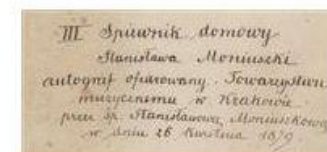 III Śpiewnik domowy
Stanisława Moniuszki
autograf ofiarowany Towarzystwu
muzycznemu w Krakowie
przez śp. Stanisławową Moniuszkową
w dniu 26 Kwietnia 1879